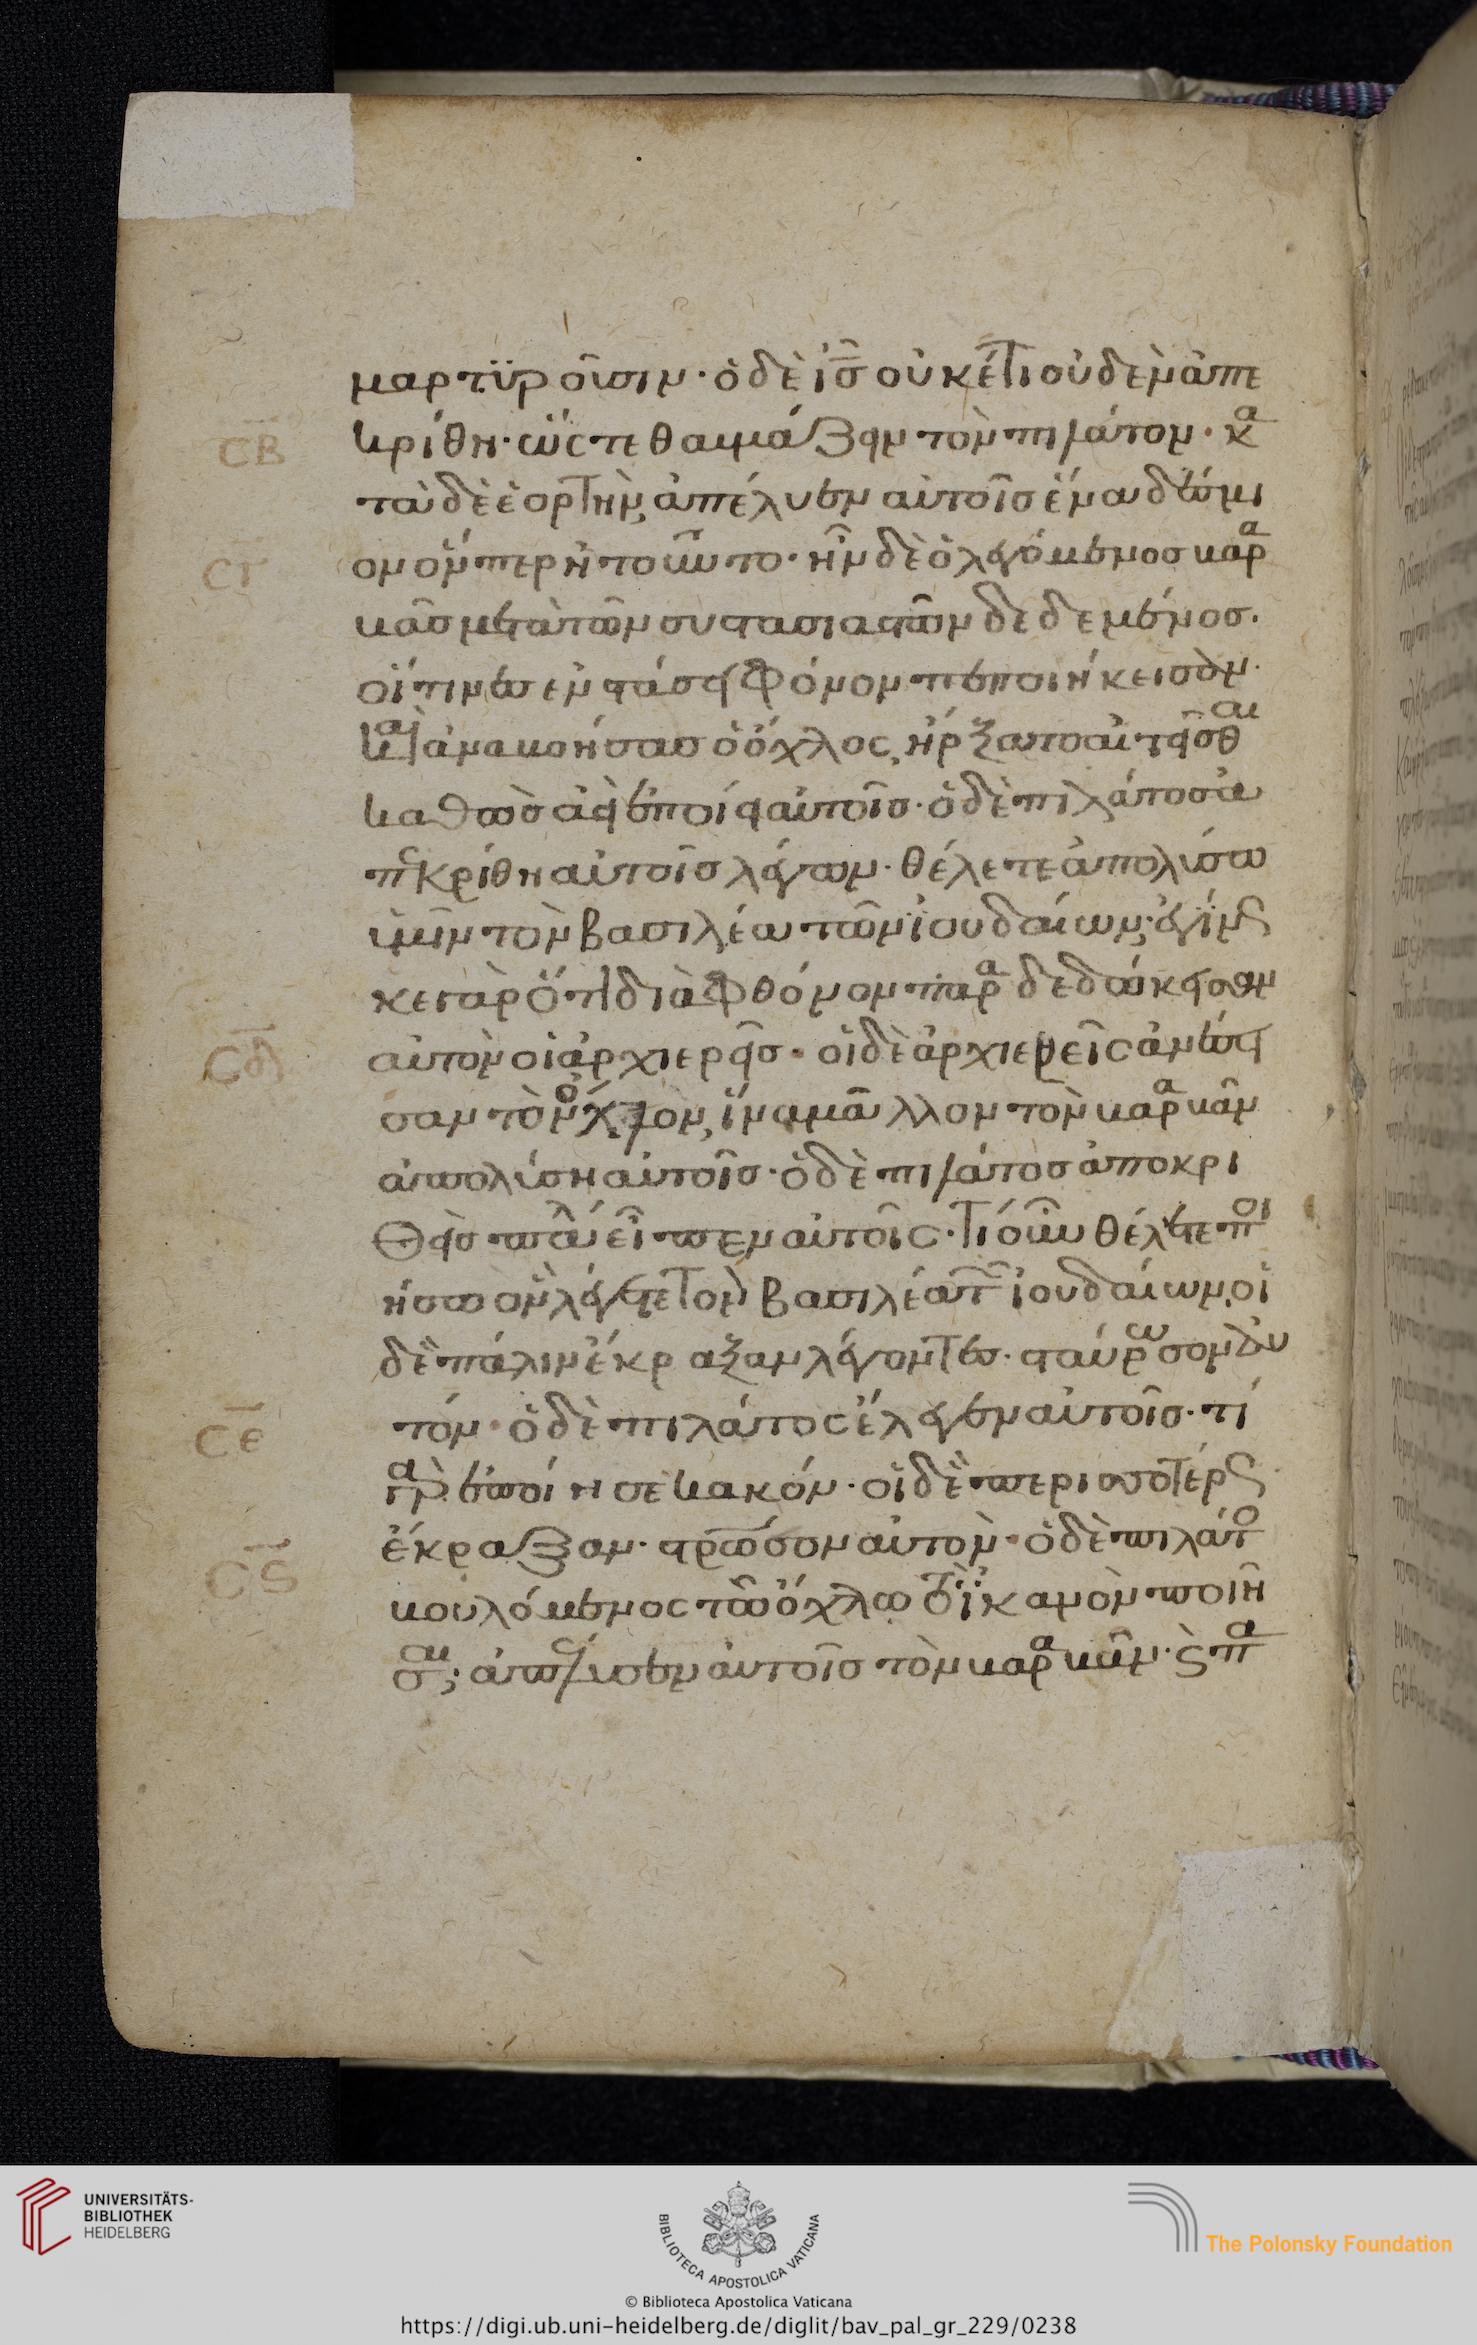 μαρτϋροῦσιν· ὁ δὲ ι̅σ̅ οὐκέτι οὐδὲν ἀπε
κρίθη· ὥς τε θαυμάζειν τὸν πιλάτον· κα
CB
τὰ δὲ ἑορτὴν, ἀπέλυεν αὐτοῖσ ἕνα δέσμι
ον ὅνπερ ἠτοῦντο· ἦν δὲ ὁ λεγόμενος βαρ
CΓ
αβᾶσ μετὰ τῶν συστασιαστῶν δεδεμένοσ.
οἵτινεσ ἐν στάσει φόνον πεποιήκεισαν·
καὶ ἀναβοήσασ ὁ ὄχλος, ἤρξατο αἰτεῖσθαι
καθὼσ ἀεὶ ἐποίει αὐτοῖσ· ὁ δὲ πιλάτοσ ἀ
πεκρίθη αὐτοῖσ λέγων· θέλετε ἀπολύσω
ὑμῖν τὸν βασιλέα τῶν ἰουδαίων; ἐγίνωσ
κε γὰρ ὅτι διὰ φθόνον παραδεδώκεισαν
αὐτὸν οἱ ἀρχιερεῖσ· οἱ δὲ ἀρχιερεῖς ἀνέσει
CΔ
σαν τὸν ὄχλον, ἵνα μᾶλλον τὸν βαραβᾶν
ἀπολύση αὐτοῖσ· ὁ δὲ πιλάτοσ ἀποκρι
θεὶσ πάλιν εἶπεν αὐτοῖς· τί οὖν θέλετε ποι
ήσω ὃν λέγετε τὸν βασιλέα τῶν ἰουδαίων, οἱ
δὲ πάλιν ἔκραξαν λέγοντεσ· σταύρωσον αὐ
τόν· ὁ δὲ πιλάτος ἔλεγεν αὐτοῖσ· τί
Cε
γὰρ ἐποίησε κακόν· οἱ δὲ περισσοτέρως
ἔκραξαν· στρώσον αὐτὸν· ὁ δὲ πιλάτο
CS
βουλόμενος τῶ ὄχλω τὸ ἱκανὸν ποιῆ
σαι; ἀπέλυσεν αὐτοῖσ τὸν βαραβᾶν· καὶ πα
UNIVERSITÄTS-
BIBLIOTHEK
HEIDELBERG
BIBLIOTECA APOSTOLICA VATICANA
The Polonsky Foundation
© Biblioteca Apostolica Vaticana
https://digi.ub.uni-heidelberg.de/diglit/bav_pal_gr_229/0238